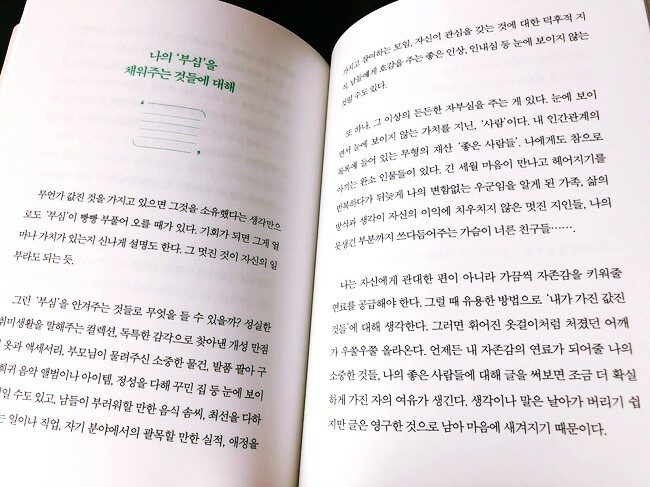 나의 '부심'을
채워주는 것들에 대해
무언가 값진 것을 가지고 있으면 그것을 소유했다는 생각만으
로도 '부심'이 빵빵 부풀어 오를 때가 있다. 기회가 되면 그게 얼
마나 가치가 있는지 신나게 설명도 한다. 그 멋진 것이 자신의 일
부라도 되는 듯.
그런 '부심'을 안겨주는 것들로 무엇을 들 수 있을까? 성실한
취미생활을 말해주는 컬렉션, 독특한 감각으로 찾아낸 개성 만점
옷과 액세서리, 부모님이 물려주신 소중한 물건, 발품 팔아 구
희귀 음악 앨범이나 아이템, 정성을 다해 꾸민 집 등 눈에 보이
일 수도 있고, 남들이 부러워할 만한 음식 솜씨, 최선을 다하
는 일이나 직업, 자기 분야에서의 괄목할 만한 실적, 애정을
가지고 참여하는 모임, 자신이 관심을 갖는 것에 대한 덕후적 지
식, 남들에게 호감을 주는 좋은 인상, 인내심 등 눈에 보이지 않는
것일 수도 있다.
또 하나, 그 이상의 든든한 자부심을 주는 게 있다. 눈에 보이
면서 눈에 보이지 않는 가치를 지닌, '사람'이다. 내 인간관계의
목록에 들어 있는 무형의 재산 '좋은 사람들'. 나에게도 참으로
아끼는 완소 인물들이 있다. 긴 세월 마음이 만나고 헤어지기를
반복하다가 뒤늦게 나의 변함없는 우군임을 알게 된 가족, 삶의
방식과 생각이 자신의 이익에 치우치지 않은 멋진 지인들, 나의
못생긴 부분까지 쓰다듬어주는 가슴이 너른 친구들…….
나는 자신에게 관대한 편이 아니라 가끔씩 자존감을 키워줄
연료를 공급해야 한다. 그럴 때 유용한 방법으로 '내가 가진 값진
것들'에 대해 생각한다. 그러면 휘어진 옷걸이처럼 처졌던 어깨
가 우쭐우쭐 올라온다. 언제든 내 자존감의 연료가 되어줄 나의
소중한 것들, 나의 좋은 사람들에 대해 글을 써보면 조금 더 확실
하게 가진 자의 여유가 생긴다. 생각이나 말은 날아가 버리기 쉽
지만 글은 영구한 것으로 남아 마음에 새겨지기 때문이다.